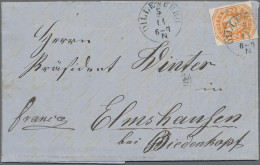 DILLENBURG
5
11
6-7
N
Herrn
Präsident Winter
Franco
Elmshausen
bei Biedenkopf